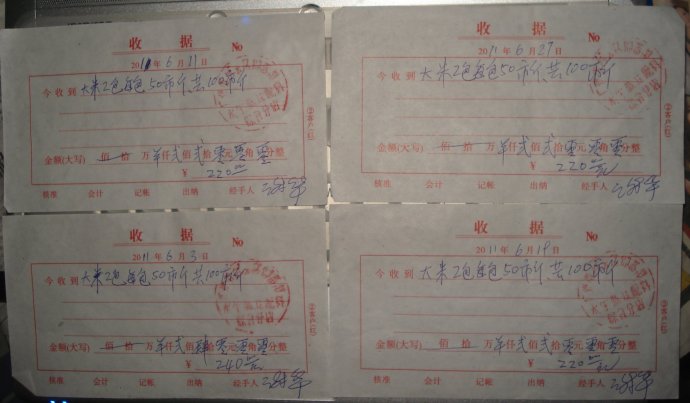 收 据
No
2011年6月11日
今收到 大米2包每包50市斤共100市斤
金额(大写) 佰 拾 万 羊仟贰佰贰拾零元零角零分整
¥ 220元
核准 会计 记帐 出纳 经手人
②客户(红)
收 据
No
2011年6月27日
今收到 大米2包每包50市斤共100市斤
金额(大写) 佰 拾 万 羊仟贰佰贰拾零元零角零分整
¥ 220元
核准 会计 记帐 出纳 经手人
②客户(红)
收 据
No
2011年6月3日
今收到 大米2包每包50市斤共100市斤
金额(大写) 佰 拾 万 羊仟贰佰肆拾零元零角零分整
¥ 240元
核准 会计 记帐 出纳 经手人
②客户(红)
收 据
No
2011年6月19日
今收到 大米2包每包50市斤共100市斤
金额(大写) 佰 拾 万 羊仟贰佰贰拾零元零角零分整
¥ 220元
核准 会计 记帐 出纳 经手人
②客户(红)